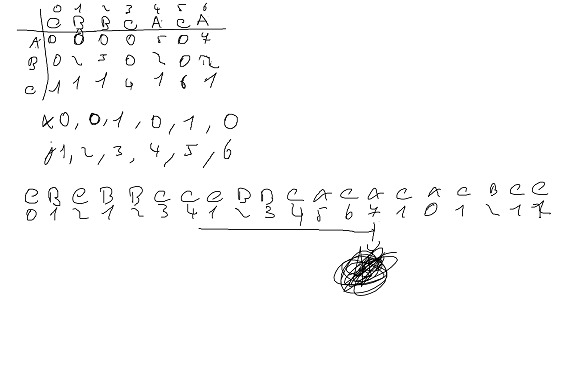 0 1 2 3 4 5 6
C B B C A C A
A 0 0 0 0 5 0 7
B 0 2 3 0 2 0 2
C 1 1 1 4 1 6 1
x 0, 0, 1, 0, 1, 0
j 1, 2, 3, 4, 5, 6
C B C B B C C C B B C A C A C A C B C C
0 1 2 1 2 3 4 1 2 3 4 5 6 7 1 0 1 2 1 1